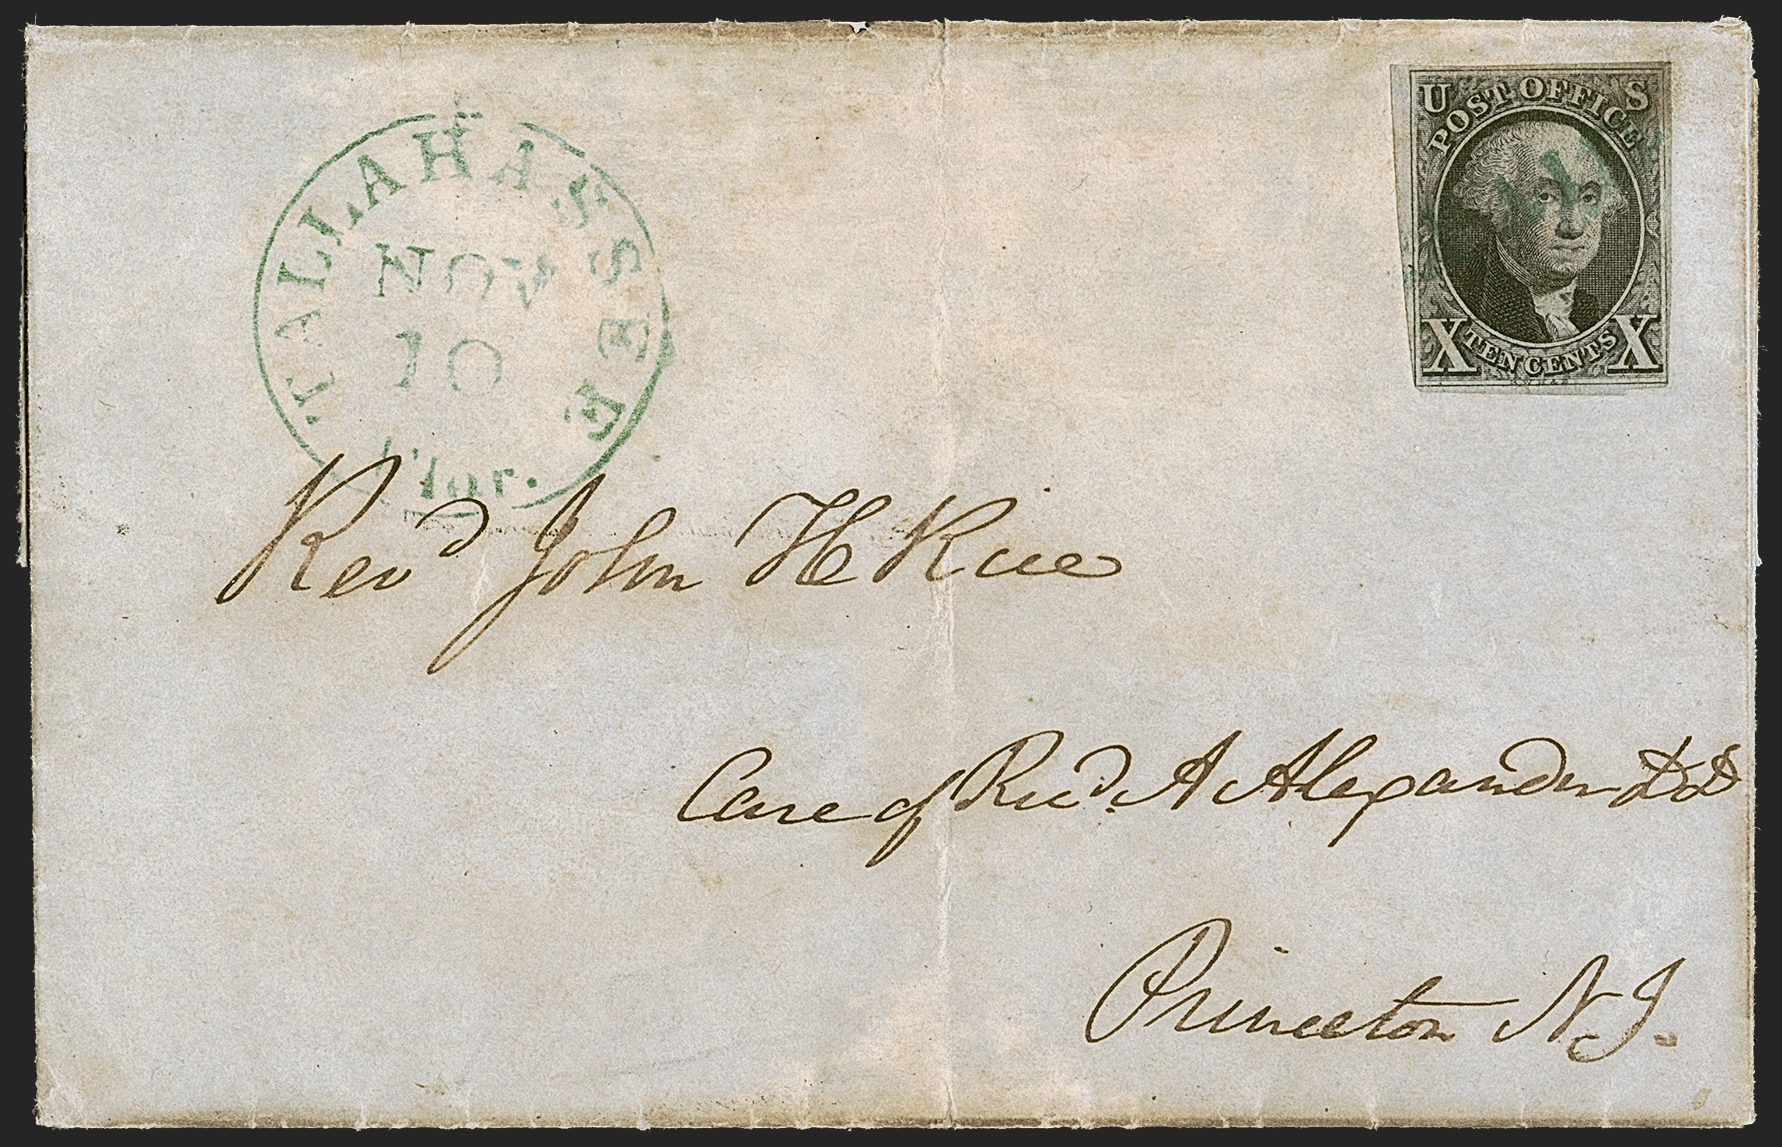 TALLAHASSEE
NOV
10
Flor.
U S
POST OFFICE
X TEN CENTS X
Revd John H Rice
Care of Revd. A Alexander DD
Princeton N.J.